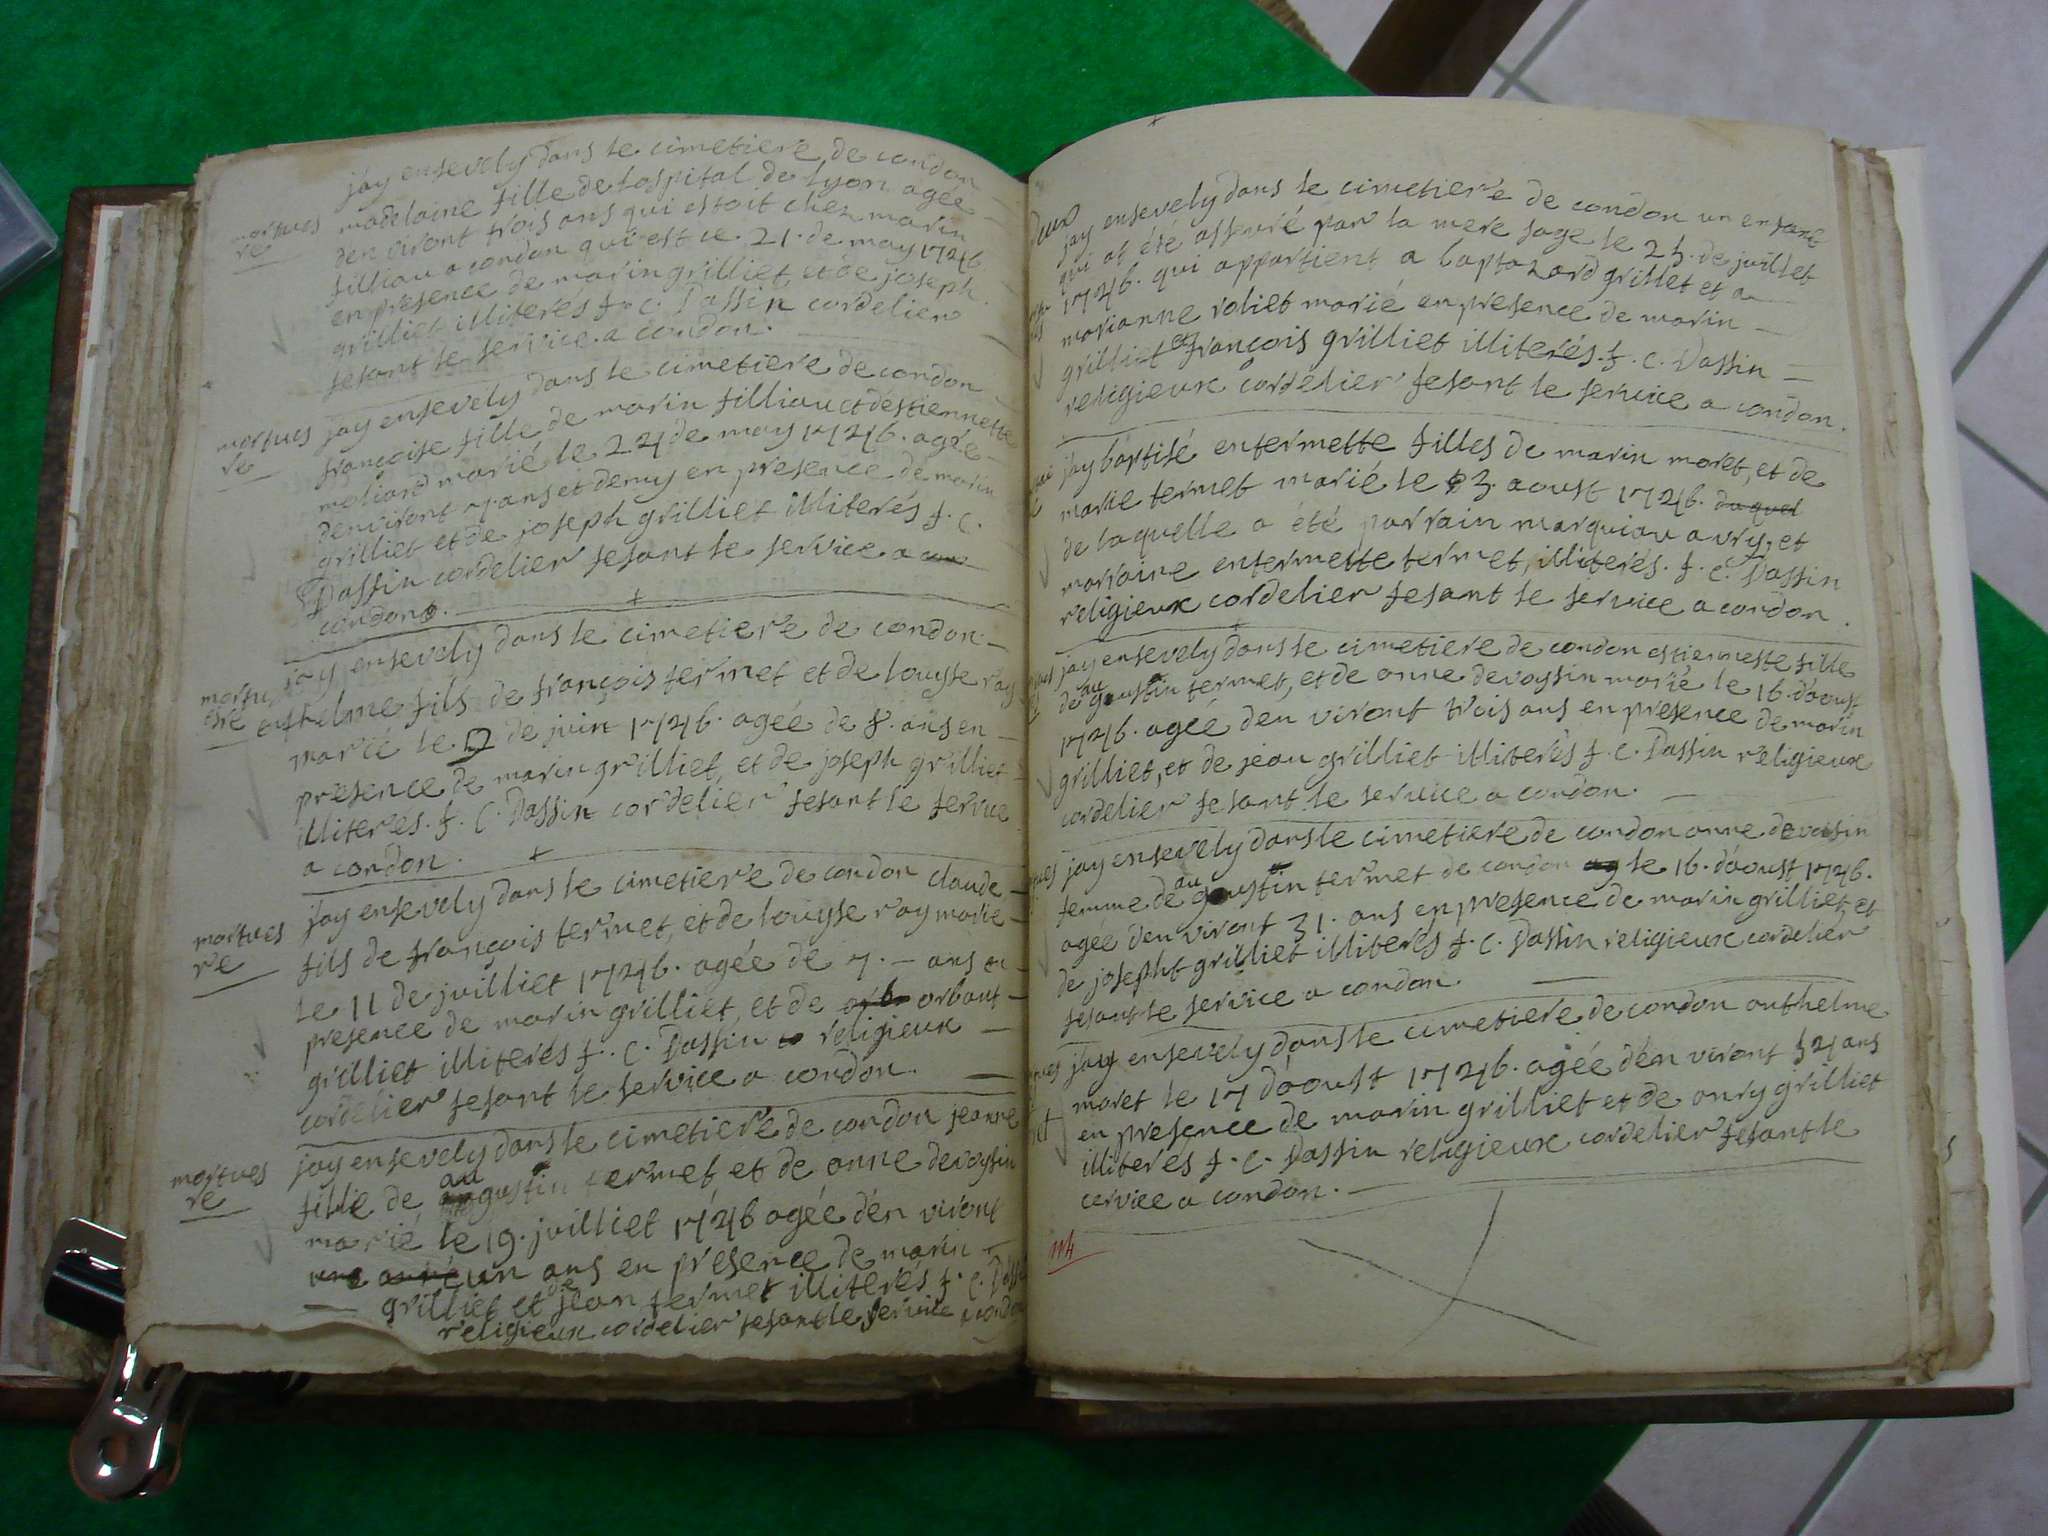 jay ensevely dans le cimetiere de condon
mortues madelaine fille de lospital de lyon agée
re den viront trois ans qui estoit chez marin
filliau a condon qui est ce 21. de may 1746
en presence de marin grilliet et de joseph
grilliet illiteres f. C. Dassin cordelier
fesant le service a condon.
jay ensevely dans le cimetiere de condon
mortues françoise fille de marin filliau et destiennette
re moliard marié le 24 de may 1746. agée
denviront 7 ans et demy en presence de marin
grilliet et de joseph grilliet illiterés f. C.
Dassin cordelier fesant le service a
condon.
jay ensevely dans le cimetiere de condon
mortu anthelme fils de françois termet et de louyse ray
marié le de juin 1746. agée de 8. ans en
presence de marin grilliet, et de joseph grilliet
illiteres. f. C. Dassin cordelier fesant le service
a condon.
jay ensevely dans le cimetiere de condon claude
mortues fils de françois termet, et de louyse ray marie
re le 11 de juilliet 1746. agée de 7. ans en
presence de marin grilliet, et de orbant
grilliet illiterés f. C. Dassin religieux
cordelier fesant le service a condon.
jay ensevely dans le cimetiere de condon jeanne
mortues fille de augustin termet et de anne devoysin
re marié le 19. juilliet 1746 agée dén viront
une un ans en présence de marin
grilliet et de jean termet illiterés f. C. Dassi
religieux cordelier fesant le service a condon
jay ensevely dans le cimetiere de condon un enfant
qui at été asseuré par la mere sage le 25. de juillet
1746. qui appartient a baptazard grillet et a
marianne roliet marié en presence de marin
grilliet et françois grilliet illiterés. f. C. Dassin
religieux cordelier fesant le service a condon.
jay baptisé entermette filles de marin moret, et de
marie termet marié le 3. aoust 1746. duquel
de laquelle a été parrain marquiau avry, et
marraine entermette termet, illiterés. f. C. Dassin
religieux cordelier fesant le service a condon.
jay ensevely dans le cimetiere de condon estiennette fille
de augustin termet, et de anne devoysin marié le 16. daoust
1746. agée den viront trois ans en presence de marin
grilliet, et de jean grilliet illiterés f. C. Dassin religieux
cordelier fesant le service a condon.
jay ensevely dans le cimetiere de condon anne devoisin
femme de augustin termet de condon le 16. daoust 1746.
agée den viront 31. ans en presence de marin grilliet, et
de josepht grilliet illiterés f. C. Dassin religieux cordelier
fesant le service a condon.
jay ensevely dans le cimetiere de condon anthelme
moret le 17 daoust 1746. agée dén viront 54 ans
en presence de marin grilliet et de anry grilliet
illiteres f. C. Dassin religieux cordelier fesant le
cervice a condon.